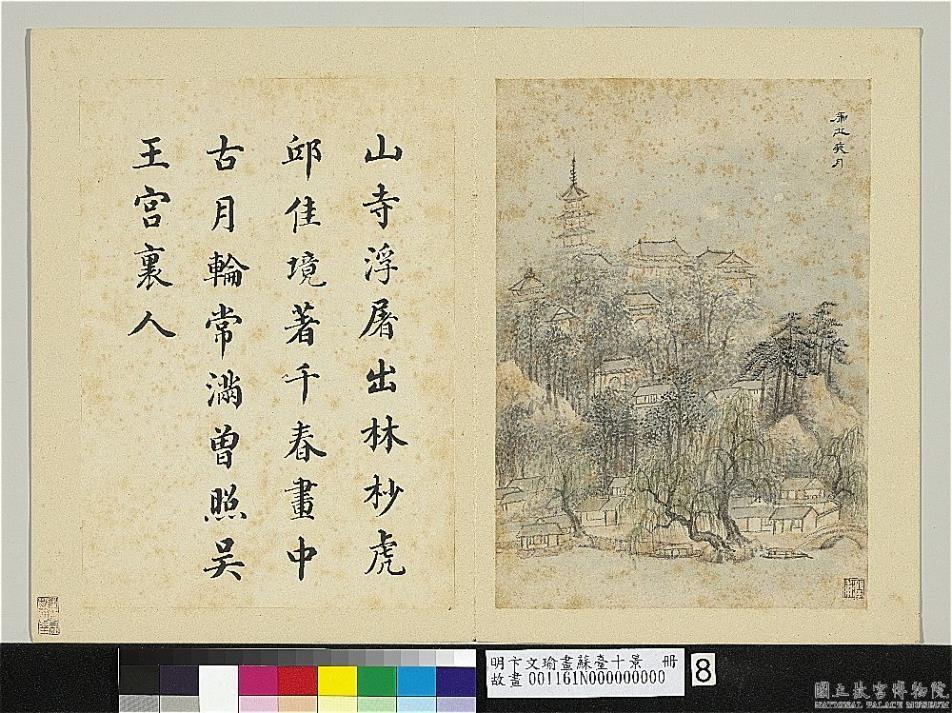 山寺浮屠出林杪虎
邱佳境著千春畫中
古月輪常滿曽照吴
王宫裏人
夜月
明卞文瑜畫蘇臺十景 冊
故畫 001161N000000000
8
國立故宮博物院
NATIONAL PALACE MUSEUM